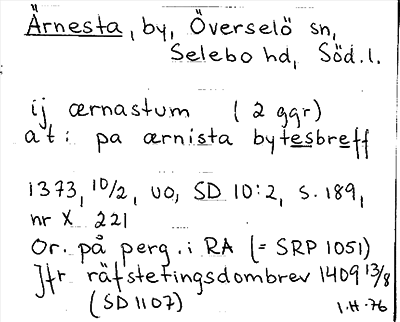 Ärnesta, by, Överselö sn,
Selebo hd, Söd.l.
ij ærnastum (2 ggr)
at: pa ærnista bytesbreff
1373, 10/2, uo, SD 10:2, s. 189,
nr X 221
Or. på perg. i RA (= SRP 1051)
Jfr räfstetingsdombrev 1409 13/8
(SD 1107)
I.H. 76